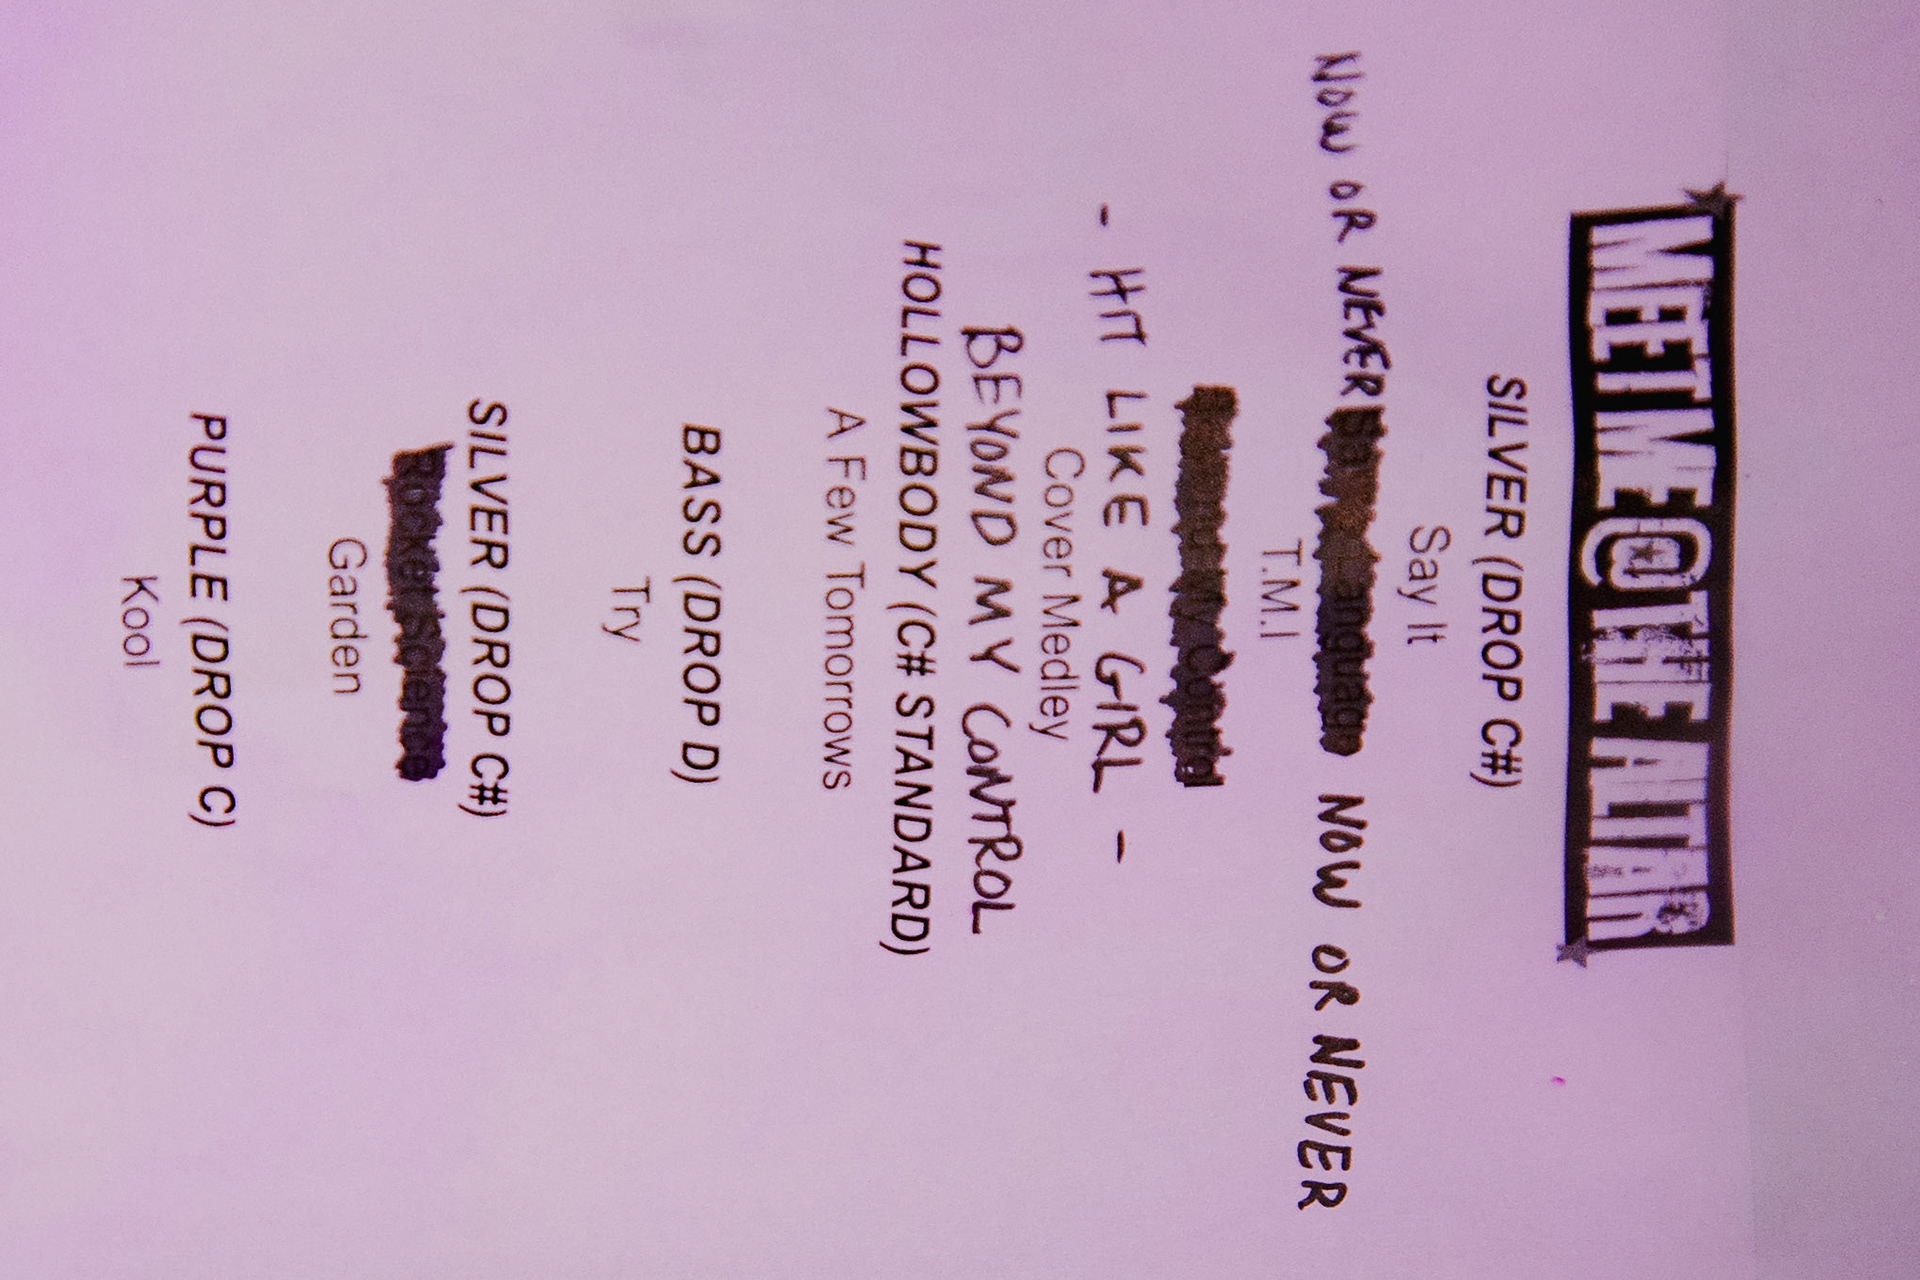 MEET ME @ THE ALTAR
SILVER (DROP C#)
Say It
NOW OR NEVER Same Language NOW OR NEVER
T.M.I
Beyond My Control
- HIT LIKE A GIRL -
Cover Medley
BEYOND MY CONTROL
HOLLOWBODY (C# STANDARD)
A Few Tomorrows
BASS (DROP D)
Try
SILVER (DROP C#)
Rocket Science
Garden
PURPLE (DROP C)
Kool